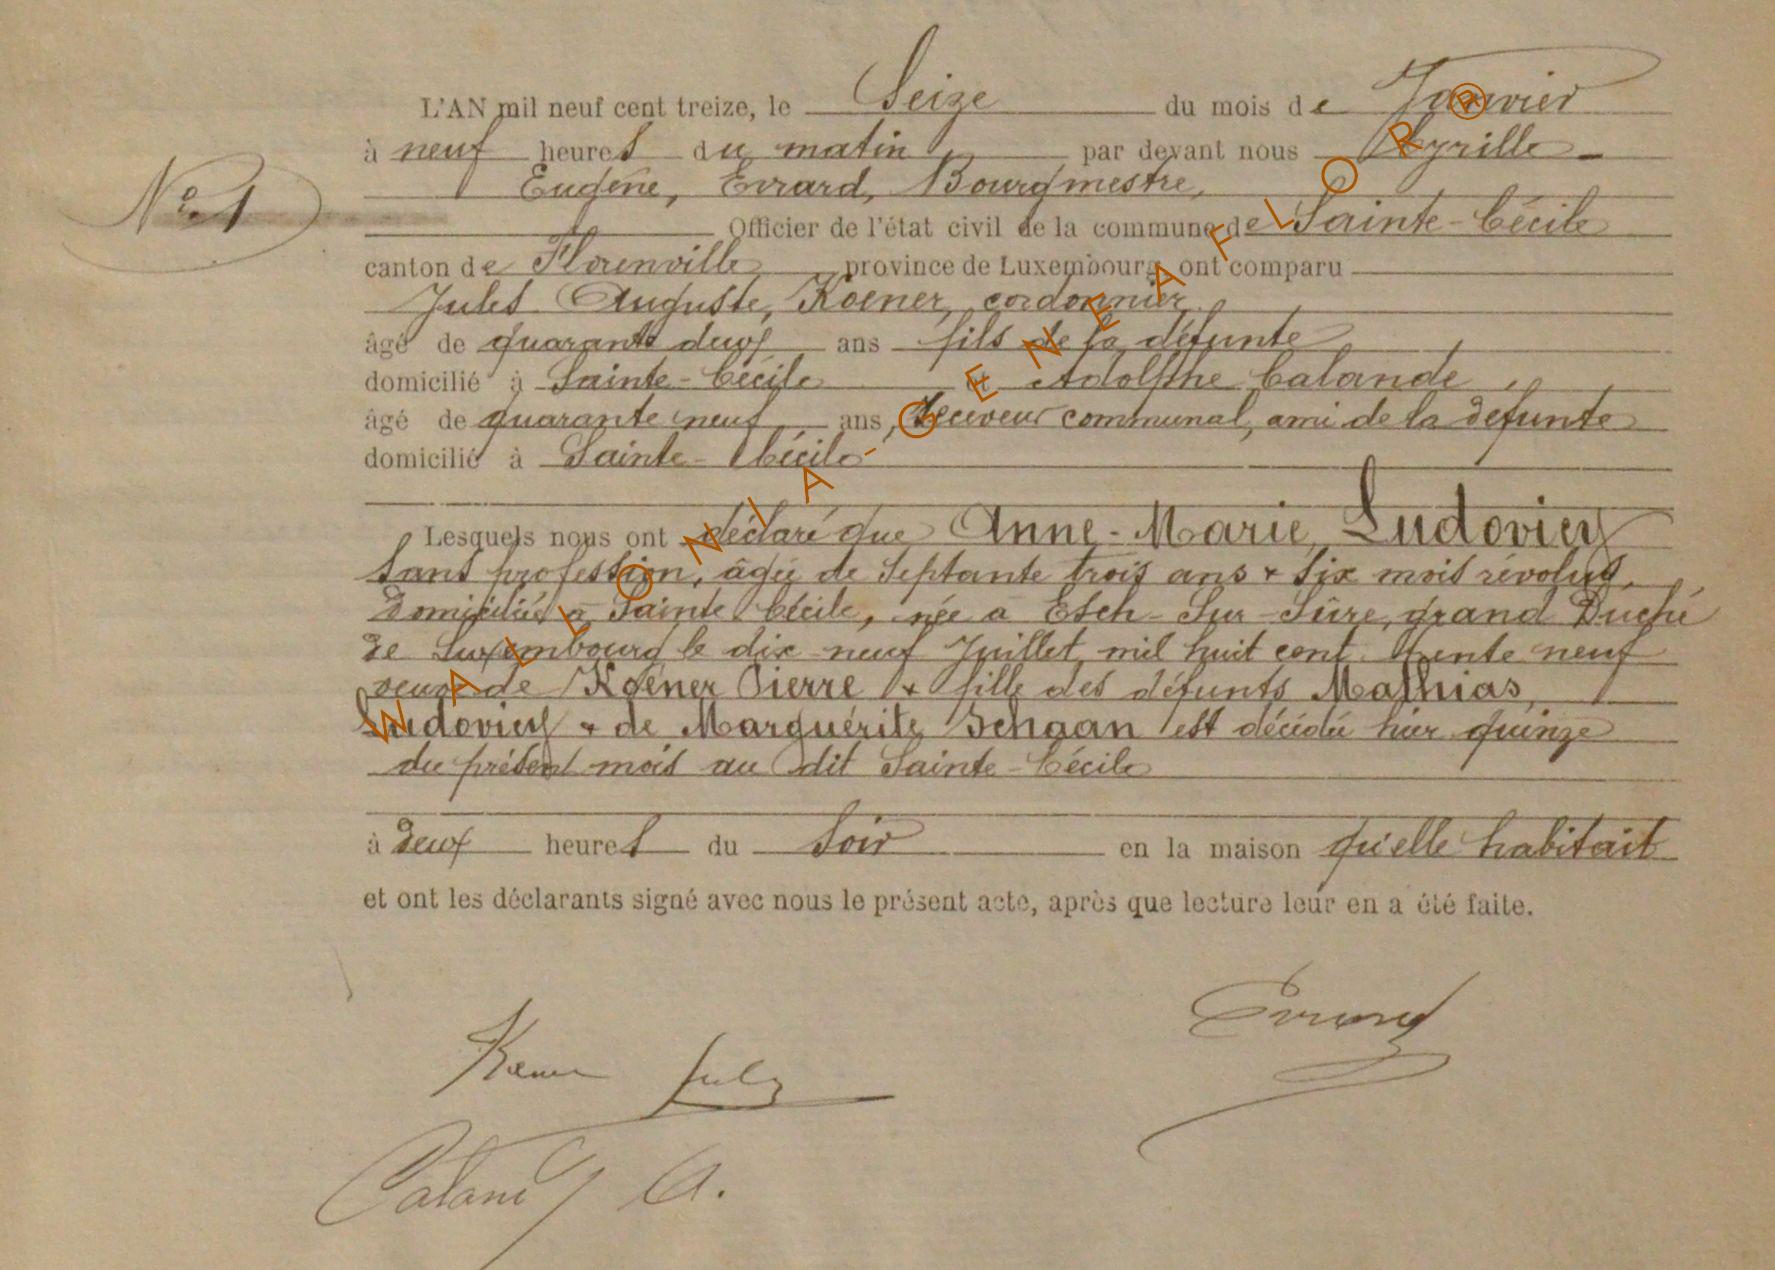 L'AN mil neuf cent treize, le Seize du mois de Janvier
à neuf heures du matin, par devant nous Cyrille
Eugène, Evrard, Bourgmestre,
N° 1
Officier de l'état civil de la commune de Sainte-Cécile
canton de Florenville province de Luxembourg, ont comparu
Jules Auguste, Koener, cordonnier
âgé de quarante deux ans fils de la défunte
domicilié à Sainte-Cécile et Adolphe Calande,
âgé de quarante neuf ans, Receveur communal, ami de la défunte
domicilié à Sainte-Cécile
Lesquels nous ont déclaré que Anne-Marie, Ludovicy
Sans profession, âgée de Septante trois ans & Six mois révolus,
Domiciliée à Sainte Cécile, née a Esch-Sur-Sûre, grand Duché
de Luxembourg le dix neuf Juillet mil huit cent trente neuf
veuve de Koener Pierre & fille des défunts Mathias,
Ludovicy & de Marguérite Schaan est décédée hier quinze
du présent mois au dit Sainte-Cécile
à deux heures du Soir en la maison qu'elle habitait
et ont les déclarants signé avec nous le présent acte, après que lecture leur en a été faite.
Evrard
Koener Jules
Calande A.
WALLONIA-GENEAFLOR®